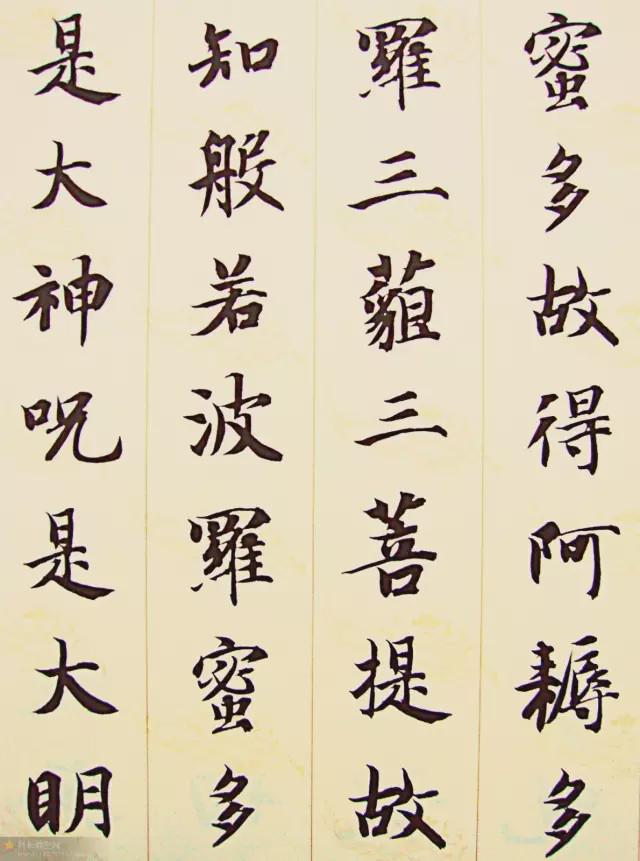 蜜多故得阿耨多
羅三藐三菩提故
知般若波羅蜜多
是大神呪是大明